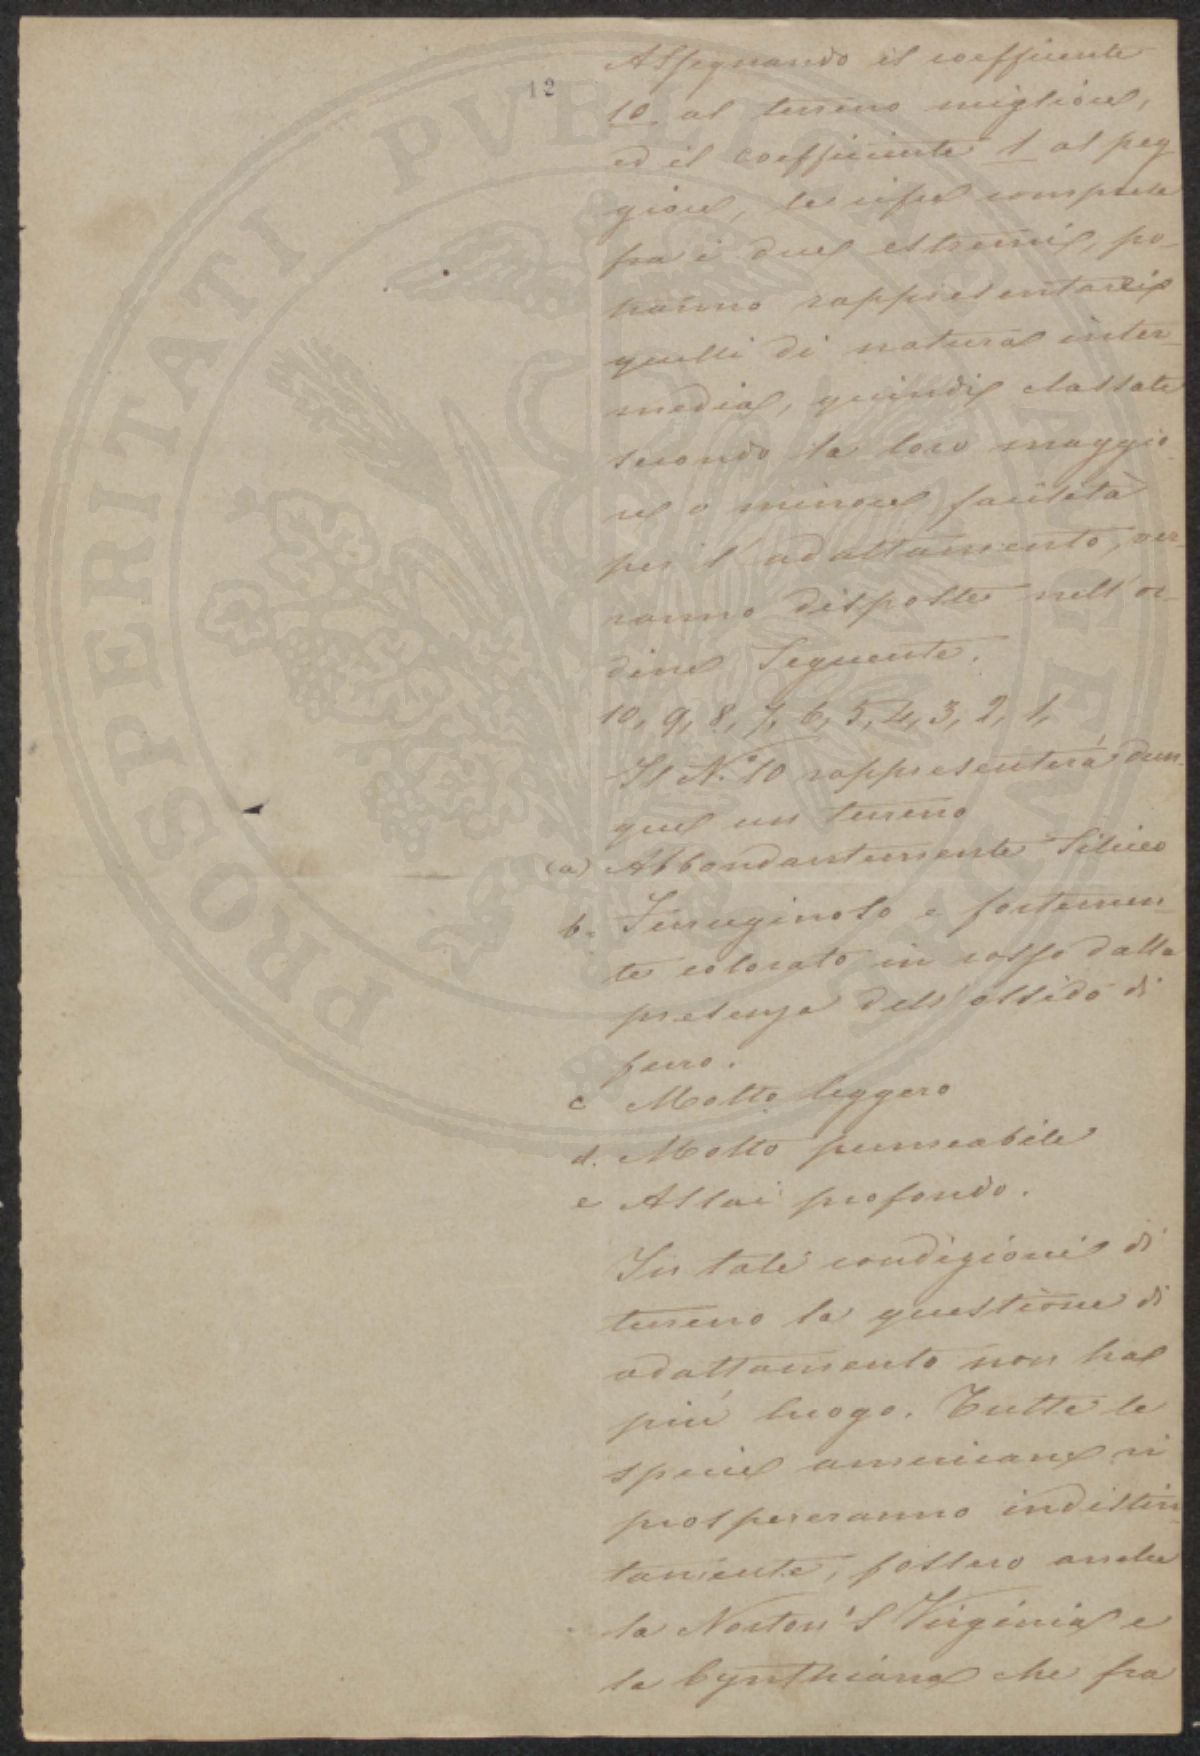 12
Assegnando il coefficiente
10 al terreno migliore,
ed il coefficiente 1 al peg-
giore, le cifre comprese
fra i due estremi, po-
tranno rappresentarci
quelli di natura inter-
media, quindi classate
secondo la loro maggio-
re o minore facilità
per l'adattamento, ver-
ranno disposte nell'or-
dine Seguente.
10, 9, 8, 7, 6, 5, 4, 3, 2, 1,
Il N.º 10 rappresenterà dun-
que un terreno
(a) Abbondantemente Siliceo
b. Ferruginoso e fortemen-
te colorato in rosso dalla
presenza dell'ossido di
ferro.
c Molto leggero
d. Molto permeabile
e Assai profondo.
In tali condizioni di
terreno la questione di
adattamento non ha
più luogo. Tutte le
specie americane vi
prospereranno indistin-
tamente, fossero anche
la Norton's Virginia e
la Cynthiana che fra
PROSPERITATI PVBLICAE AVGENDAE